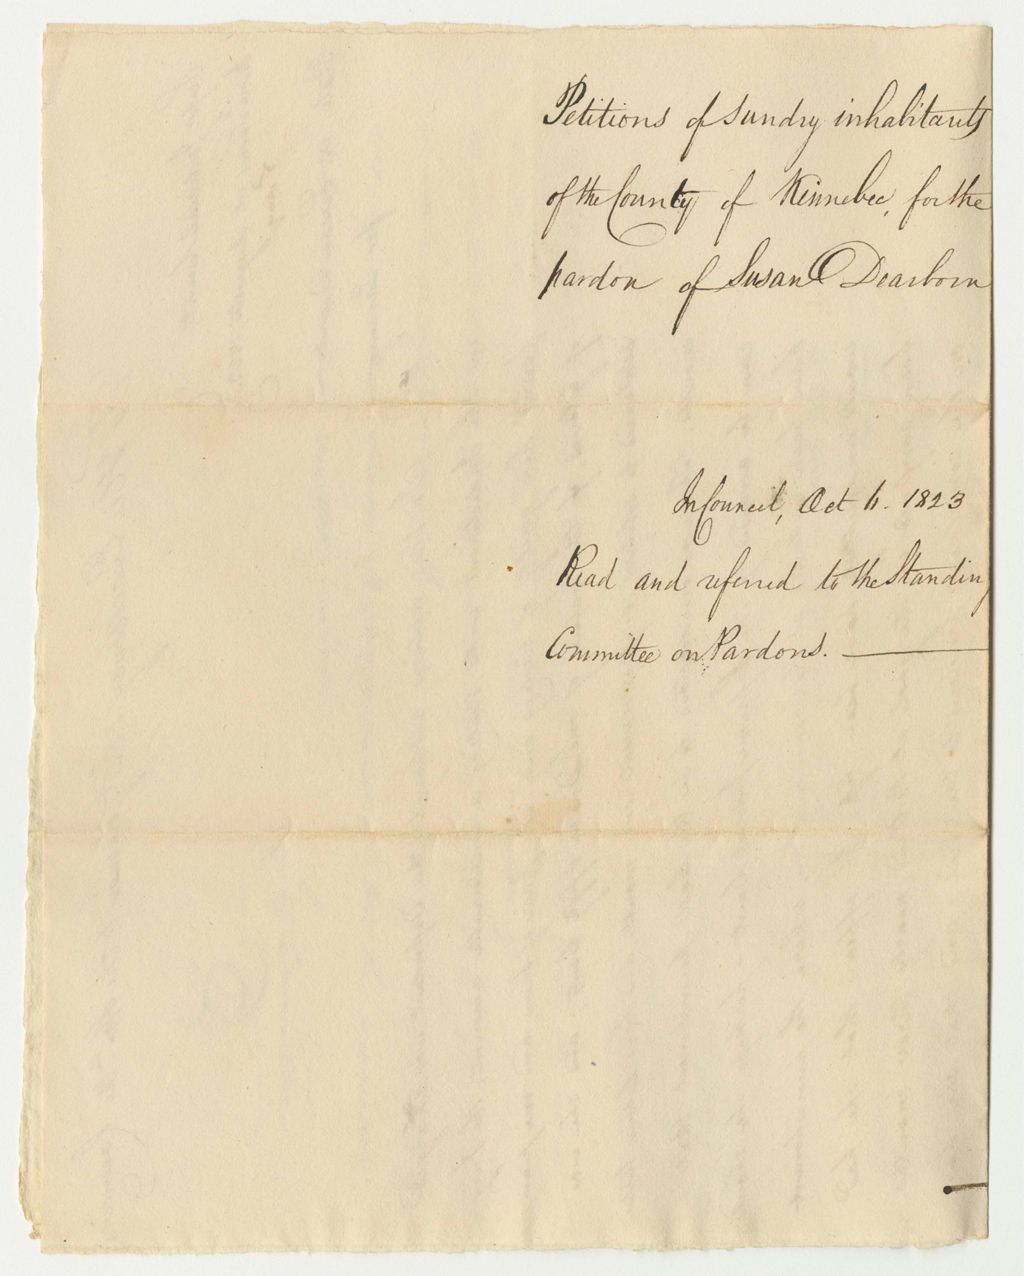 Petitions of sundry inhabitants
of the County of Kennebec, for the
pardon of Susan Dearborn
In Council, Oct 6. 1823
Read and referred to the Standing
Committee on Pardons.